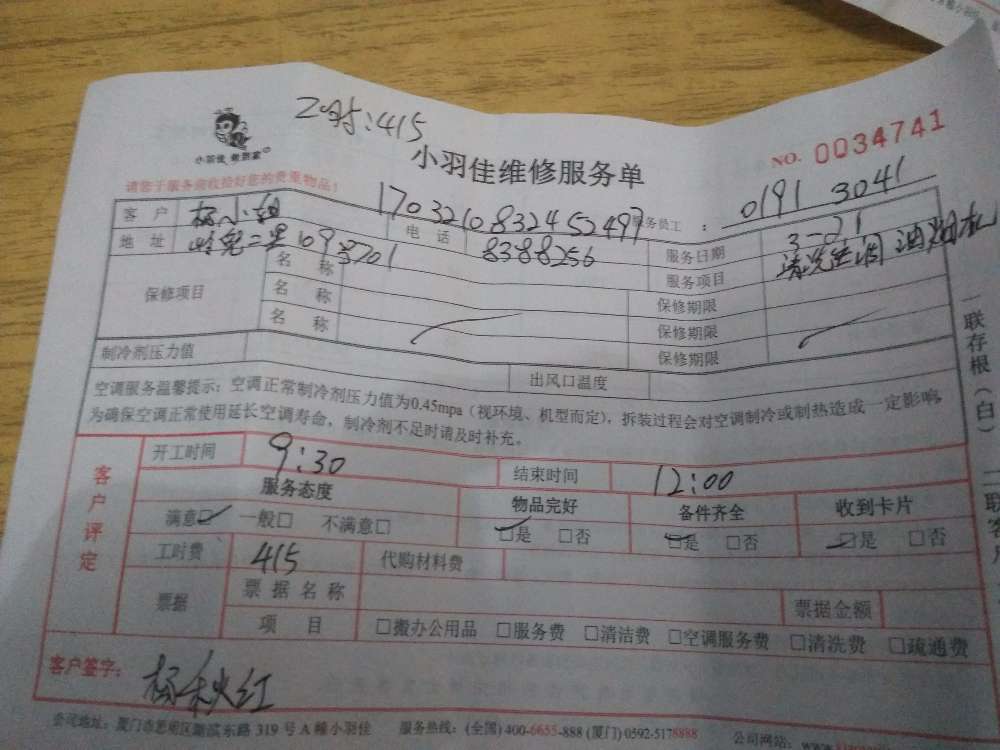 415
小羽佳维修服务单
NO. 0034741
请您于服务前收捡好您的贵重物品!
客户 杨小姐 电话 17032108324 52497 服务员工: 0191 3041
地址 二里109号701 8388256 服务日期 3-21
保修项目 名称 服务项目 清洗空调 油烟机
名称 保修期限
名称 保修期限
保修期限
制冷剂压力值 出风口温度
空调服务温馨提示:空调正常制冷剂压力值为0.45mpa(视环境、机型而定),拆装过程会对空调制冷或制热造成一定影响,
为确保空调正常使用延长空调寿命,制冷剂不足时请及时补充。
客户评定
开工时间 9:30 结束时间 12:00
服务态度 物品完好 备件齐全 收到卡片
满意☑ 一般□ 不满意□ ☑是 □否 ☑是 □否 ☑是 □否
工时费 415 代购材料费
票据 票据名称 票据金额
项目 □搬办公用品 □服务费 □清洁费 □空调服务费 □清洗费 □疏通费
客户签字: 杨秋红
公司地址:厦门市思明区湖滨东路319号A幢小羽佳 服务热线:(全国)400-6655-888 (厦门)0592-5178888 公司网站:
一联存根(白) 二联客户